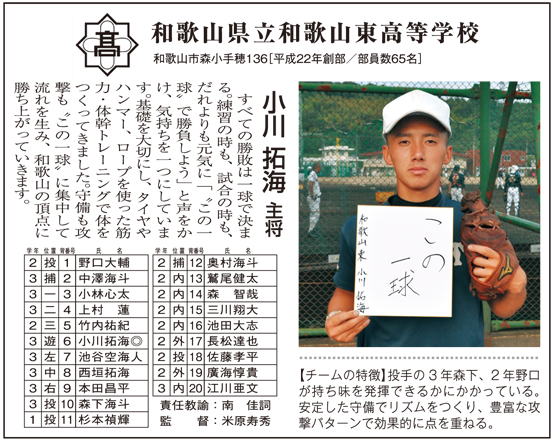 高
和歌山県立和歌山東高等学校
和歌山市森小手穂136［平成22年創部／部員数65名］
小川 拓海 主将
すべての勝敗は一球で決ま
る。練習の時も、試合の時も、
だれよりも元気に「〝この一
球〟で勝負しよう」と声をか
け、気持ちを一つにしていま
す。基礎を大切にし、タイヤや
ハンマー、ロープを使った筋
力・体幹トレーニングで体を
つくってきました。守備も攻
撃も〝この一球〟に集中して
流れを生み、和歌山の頂点に
勝ち上がっていきます。
この
一球
和歌山東 小川拓海
学年 位置 背番号 氏 名
2 投 1 野口大輔
3 捕 2 中澤海斗
3 一 3 小林心太
3 二 4 上村 蓮
2 三 5 竹内祐紀
3 遊 6 小川拓海◎
3 左 7 池谷空海人
3 中 8 西垣拓海
3 右 9 本田昌平
3 投 10 森下海斗
1 投 11 杉本禎輝
学年 位置 背番号 氏 名
2 捕 12 奥村海斗
2 内 13 鷲尾健太
2 内 14 森 哲哉
2 内 15 三川翔大
2 内 16 池田大志
2 外 17 長松達也
2 投 18 佐藤孝平
2 外 19 廣海惇貴
3 内 20 江川亜文
責任教諭：南 佳詞
監 督：米原寿秀
【チームの特徴】投手の3年森下、2年野口
が持ち味を発揮できるかにかかっている。
安定した守備でリズムをつくり、豊富な攻
撃パターンで効果的に点を重ねる。